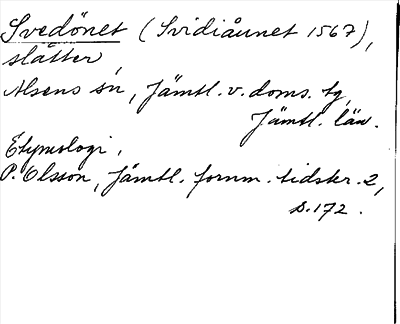 Svedönet (Svidiåunet 1567),
slåtter
Alsens sn, Jämtl. v. doms. tg,
Jämtl. län.
Etymologi.
P. Olsson, Jämtl. fornm. tidskr. 2,
s. 172.